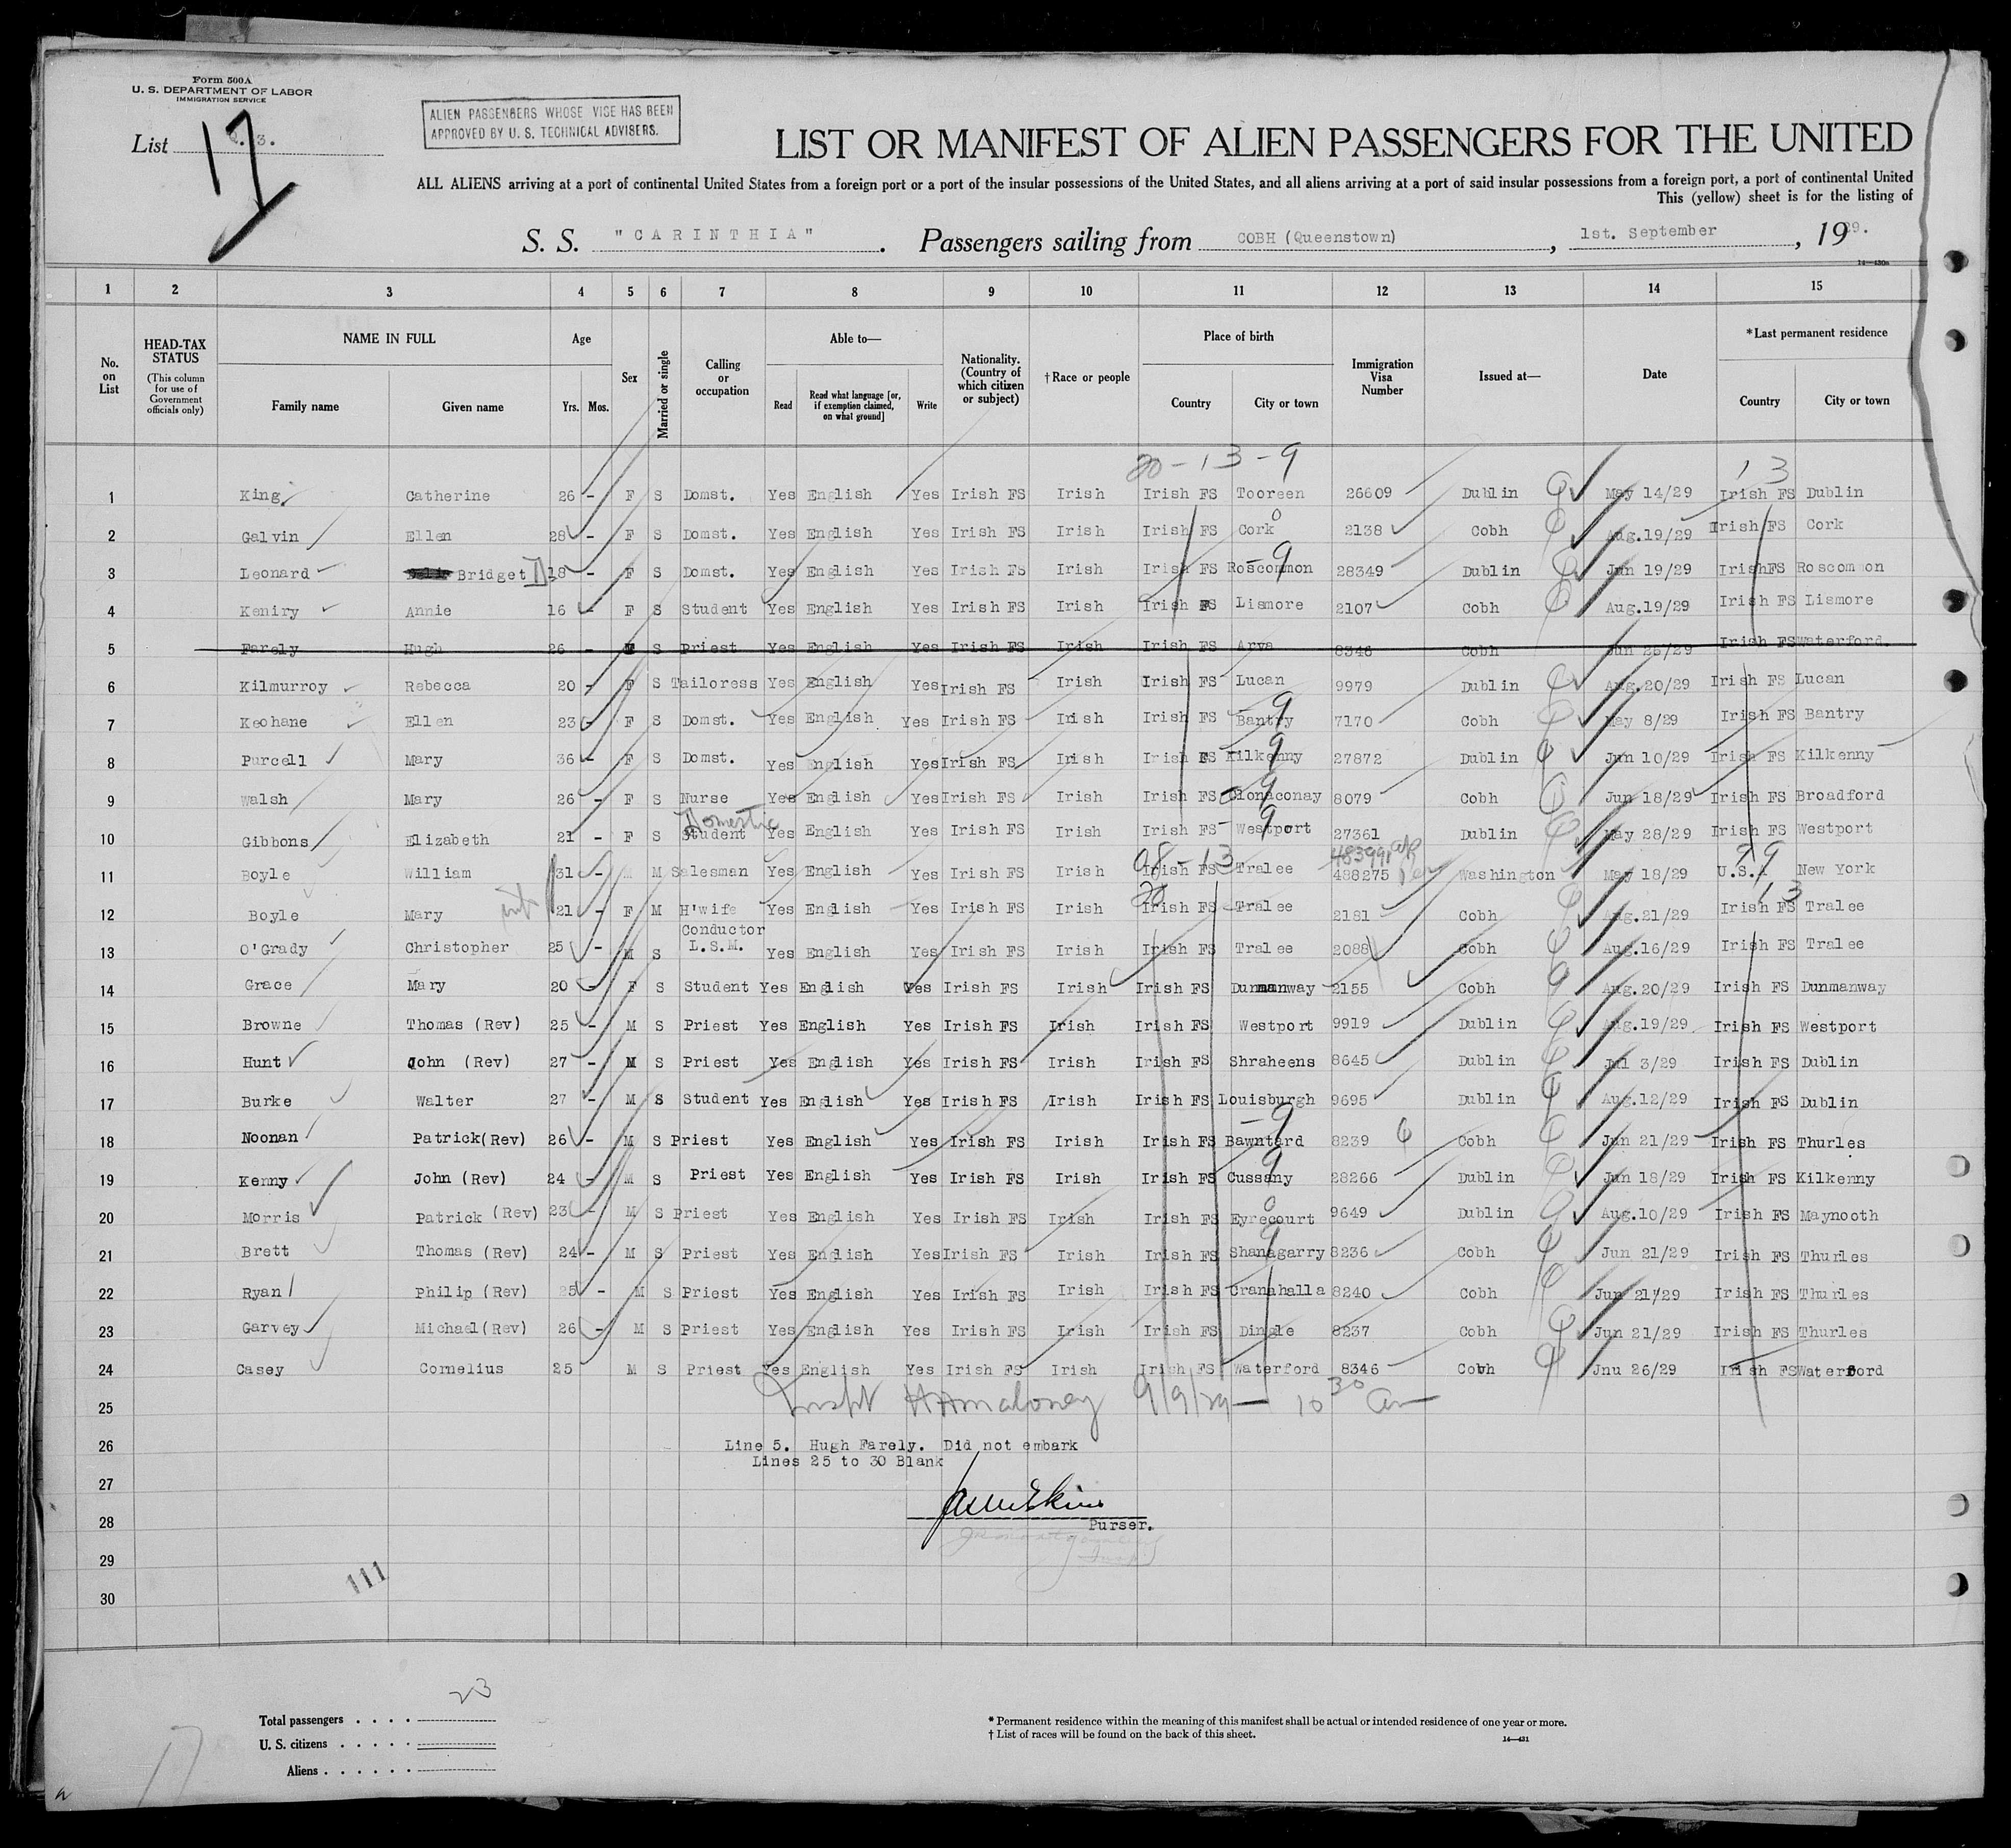 Form 500A
U. S. DEPARTMENT OF LABOR
IMMIGRATION SERVICE
List 3.
17
ALIEN PASSENGERS WHOSE VISE HAS BEEN
APPROVED BY U. S. TECHNICAL ADVISERS.
LIST OR MANIFEST OF ALIEN PASSENGERS FOR THE UNITED
ALL ALIENS arriving at a port of continental United States from a foreign port or a port of the insular possessions of the United States, and all aliens arriving at a port of said insular possessions from a foreign port, a port of continental United
This (yellow) sheet is for the listing of
S. S. "CARINTHIA" . Passengers sailing from COBH (Queenstown) , 1st. September , 1929.
1 2 3 4 5 6 7 8 9 10 11 12 13 14 15
No. on List
HEAD-TAX STATUS (This column for use of Government officials only)
NAME IN FULL
Family name Given name
Age
Yrs. Mos.
Sex
Married or single
Calling or occupation
Able to—
Read Read what language [or, if exemption claimed, on what ground] Write
Nationality. (Country of which citizen or subject)
† Race or people
Place of birth
Country City or town
Immigration Visa Number
Issued at—
Date
* Last permanent residence
Country City or town
20-13-9 13
1 King Catherine 26 - F S Domst. Yes English Yes Irish FS Irish Irish FS Tooreen 26609 Dublin May 14/29 Irish FS Dublin
2 Galvin Ellen 28 - F S Domst. Yes English Yes Irish FS Irish Irish FS Cork 2138 Cobh Aug.19/29 Irish FS Cork
3 Leonard Bridget 18 - F S Domst. Yes English Yes Irish FS Irish Irish FS Roscommon 28349 Dublin Jun 19/29 IrishFS Roscommon
4 Keniry Annie 16 - F S Student Yes English Yes Irish FS Irish Irish FS Lismore 2107 Cobh Aug.19/29 Irish FS Lismore
5 Farely Hugh 26 - S Priest Yes English Yes Irish FS Irish Irish FS Arva 8346 Cobh Jun 26/29 Irish FS Waterford.
6 Kilmurroy Rebecca 20 - F S Tailoress Yes English Yes Irish FS Irish Irish FS Lucan 9979 Dublin Aug.20/29 Irish FS Lucan
7 Keohane Ellen 23 - F S Domst. Yes English Yes Irish FS Irish Irish FS Bantry 7170 Cobh May 8/29 Irish FS Bantry
8 Purcell Mary 36 - F S Domst. Yes English Yes Irish FS Irish Irish FS Kilkenny 27872 Dublin Jun 10/29 Irish FS Kilkenny
9 Walsh Mary 26 - F S Nurse Yes English Yes Irish FS Irish Irish FS Clonaconay 8079 Cobh Jun 18/29 Irish FS Broadford
Domestic
10 Gibbons Elizabeth 21 - F S Student Yes English Yes Irish FS Irish Irish FS Westport 27361 Dublin May 28/29 Irish FS Westport
08-13 483991 99
11 Boyle William 31 - M M Salesman Yes English Yes Irish FS Irish Irish FS Tralee 488275 Washington May 18/29 U.S.A New York
20 13
12 Boyle Mary 21 - F M H'wife Yes English Yes Irish FS Irish Irish FS Tralee 2181 Cobh Aug.21/29 Irish FS Tralee
Conductor
13 O'Grady Christopher 25 - M S L.S.M. Yes English Yes Irish FS Irish Irish FS Tralee 2088 Cobh Aug.16/29 Irish FS Tralee
14 Grace Mary 20 - F S Student Yes English Yes Irish FS Irish Irish FS Dunmanway 2155 Cobh Aug.20/29 Irish FS Dunmanway
15 Browne Thomas (Rev) 25 - M S Priest Yes English Yes Irish FS Irish Irish FS Westport 9919 Dublin Aug.19/29 Irish FS Westport
16 Hunt John (Rev) 27 - M S Priest Yes English Yes Irish FS Irish Irish FS Shraheens 8645 Dublin Jul 3/29 Irish FS Dublin
17 Burke Walter 27 - M S Student Yes English Yes Irish FS Irish Irish FS Louisburgh 9695 Dublin Aug.12/29 Irish FS Dublin
18 Noonan Patrick(Rev) 26 - M S Priest Yes English Yes Irish FS Irish Irish FS Bawntard 8239 Cobh Jun 21/29 Irish FS Thurles
19 Kenny John (Rev) 24 - M S Priest Yes English Yes Irish FS Irish Irish FS Cussany 28266 Dublin Jun 18/29 Irish FS Kilkenny
20 Morris Patrick (Rev) 23 - M S Priest Yes English Yes Irish FS Irish Irish FS Eyrecourt 9649 Dublin Aug.10/29 Irish FS Maynooth
21 Brett Thomas (Rev) 24 - M S Priest Yes English Yes Irish FS Irish Irish FS Shanagarry 8236 Cobh Jun 21/29 Irish FS Thurles
22 Ryan Philip (Rev) 25 - M S Priest Yes English Yes Irish FS Irish Irish FS Cranahalla 8240 Cobh Jun 21/29 Irish FS Thurles
23 Garvey Michael(Rev) 26 - M S Priest Yes English Yes Irish FS Irish Irish FS Dingle 8237 Cobh Jun 21/29 Irish FS Thurles
24 Casey Cornelius 25 M S Priest Yes English Yes Irish FS Irish Irish FS Waterford 8346 Cobh Jnu 26/29 Irish FS Waterford
25 Inspt Maloney 9/9/29 - 10 30 am
26 Line 5. Hugh Farely. Did not embark
Lines 25 to 30 Blank
27
28 Purser.
29
30
111
Total passengers . . . . 23
U. S. citizens . . . . .
Aliens . . . . . .
17
* Permanent residence within the meaning of this manifest shall be actual or intended residence of one year or more.
† List of races will be found on the back of this sheet.
14—431